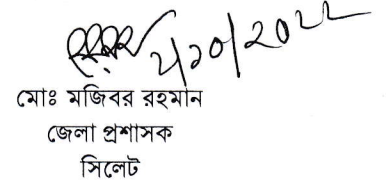 ২/১০/২০২২
মোঃ মজিবর রহমান
জেলা প্রশাসক
সিলেট